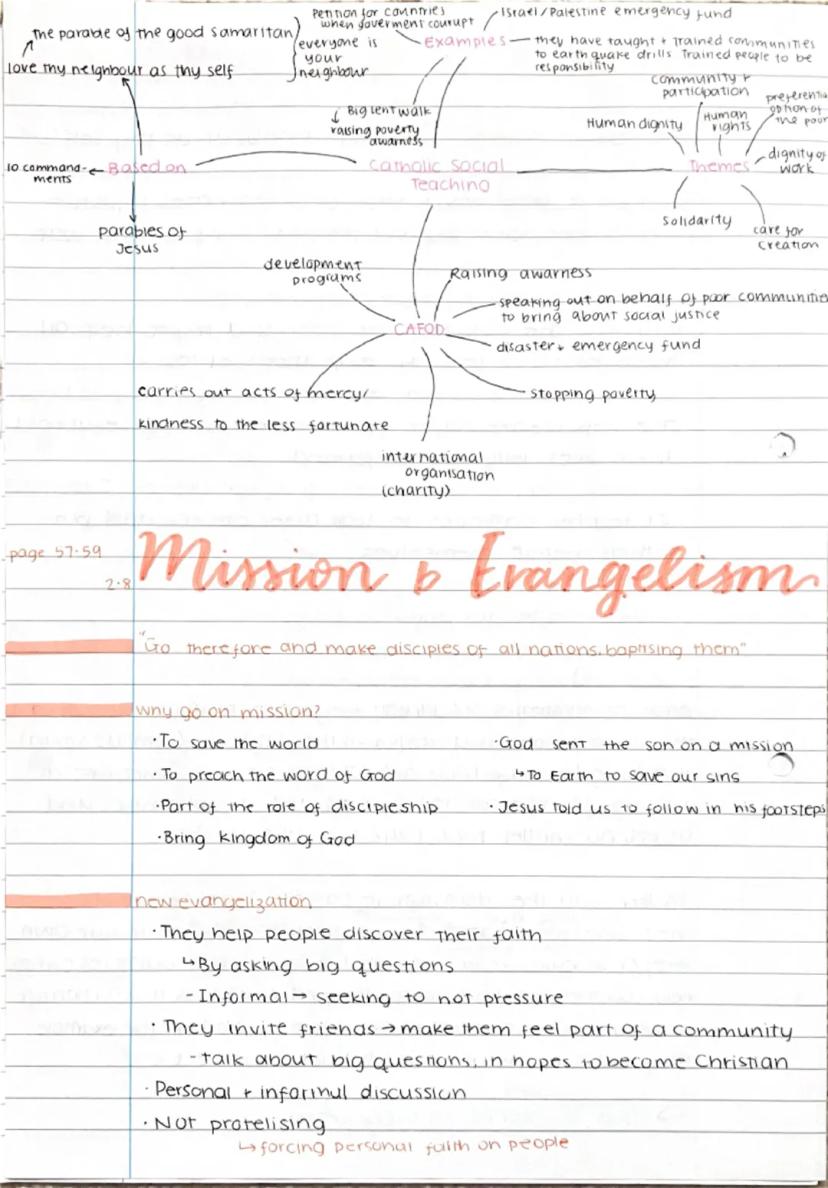 Petition for countries
when goverment courupt
Israel/Palestine emergency fund
the parable of the good samaritan
everyone is
your
neighbour
Examples
they have taught + Trained communities
to earth quake drills Trained people to be
responsibility
love thy neighbour as thy self
community +
participation
preferentia
option of
the poor
Big lent walk
↓ raising poverty
awarness
Human dignity
Human
rights
10 command-
ments
Based on
Catholic Social
Teaching
Themes
dignity of
work
parables of
Jesus
Solidarity
care for
Creation
development
programs
Raising awarness
speaking out on behalf of poor communitie
to bring about social justice
CAFOD
disaster + emergency fund
carries out acts of mercy/
kindness to the less fortunate
stopping poverty
international
organisation
(charity)
page 57-59
2.8
Mission & Evangelism
"Go therefore and make disciples of all nations. baptising them"
why go on mission?
· To save the world
· To preach the word of God
· Part of the role of discipleship
· Bring kingdom of God
· God sent the son on a mission
↳ To Earth to save our sins
· Jesus told us to follow in his footsteps
new evangelization
· They help people discover their faith
↳ By asking big questions
- Informal → seeking to not pressure
· They invite friends → make them feel part of a community
- talk about big questions, in hopes to become Christian
· Personal + informul discussion
· Not protelising
↳ forcing personal faith on people